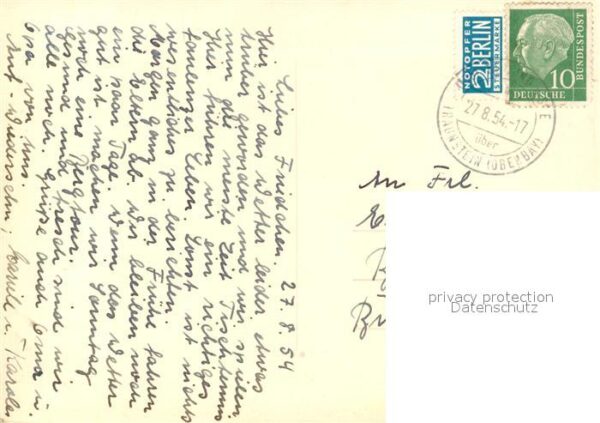 27.8.54
Liebes Friedchen.
Hier ist das Wetter leider etwas
trüber geworden und wir spielen
nun die meiste Zeit Tischtennis
Hier führen wir ein richtiges
Leben. Sonst ist nichts
wesentliches zu berichten.
Morgen ganz in der Frühe fahren
die Eltern ab. Wir bleiben noch
ein paar Tage. Wenn das Wetter
gut ist machen wir Sonntag
noch eine Bergtour.
Gesund und frisch sind wir
alle noch. Grüße auch Oma u.
Opa von uns.
Auf-Wiedersehn, u. Karola
NOTOPFER
2 BERLIN
STEUERMARKE
DEUTSCHE
BUNDESPOST
10
27.8.54.-17
über
TRAUNSTEIN (OBERBAY)
An Frl.
privacy protection
Datenschutz